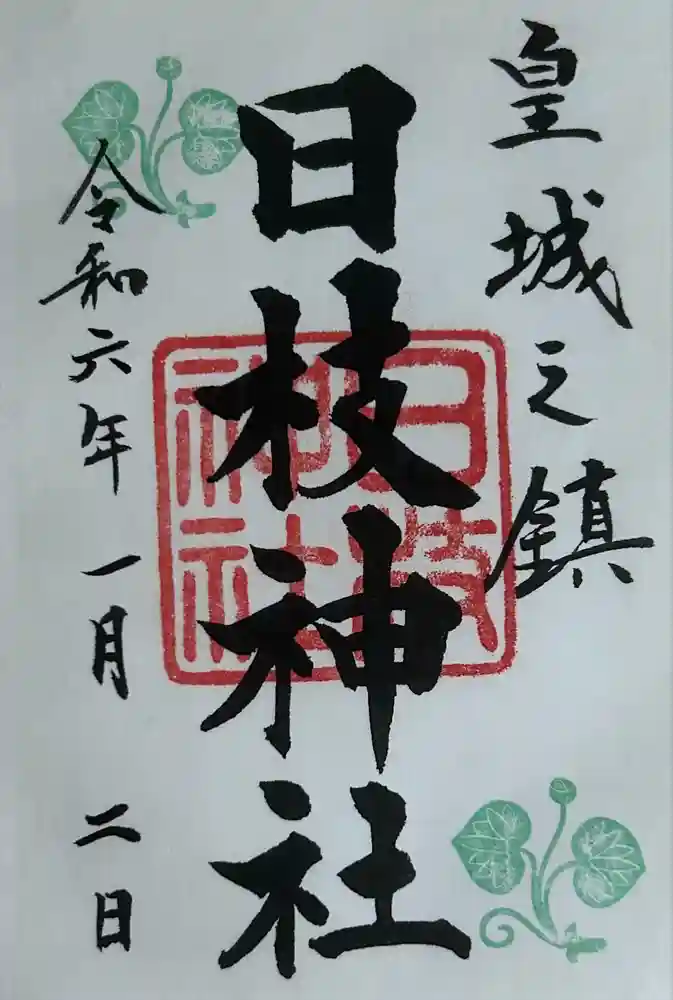 皇城之鎮
日枝神社
日枝
神社
令和六年 一月 二日